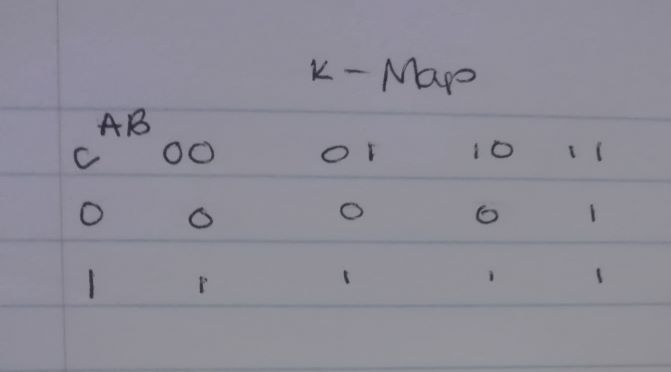 K - Map
AB
C 00 01 10 11
0 0 0 0 1
1 1 1 1 1